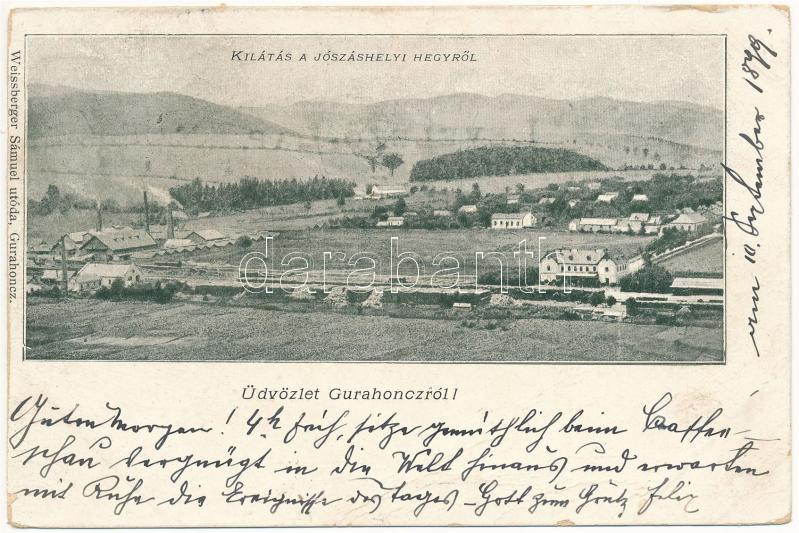 KILÁTÁS A JÓSZÁSHELYI HEGYRŐL
Weissberger Sámuel utóda, Gurahoncz.
darabanth
Üdvözlet Gurahonczról!
10. September 1899.
Guten Morgen! 4h früh, sitze gemüthlich beim Kaffee,
schau vergnügt in die Welt hinaus und erwarten
mit Ruhe die Ereignisse des Tages – Gott zum Gruß Felix